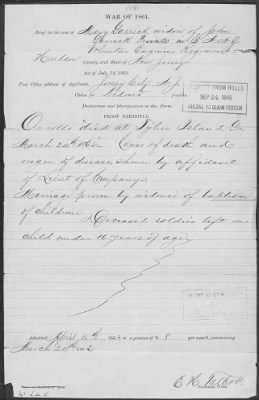 WAR OF 1861.
Brief in the case of Mary Garrick widow of John
Garrick Private in Co.
Volunteer Engineer Regiment
Hudson County, and State of New Jersey
Act of July 14, 1862.
Post Office address of Applicant, Jersey City N.J.
Claim for Widows
Declaration and Identification in due Form.
SEP 24
PROOF EXHIBITED.
On rolls "died at Tybee Island, Ga.
March 24th 1862. Cause of death and
origin of disease shown by affidavit
of Lieut of Company.
Marriage proven by evidence of baptism
of children
Deceased soldier left one
child under 16 years of age
Admitted April 186 to a pension of $ 8 per month, commencing
March 1862